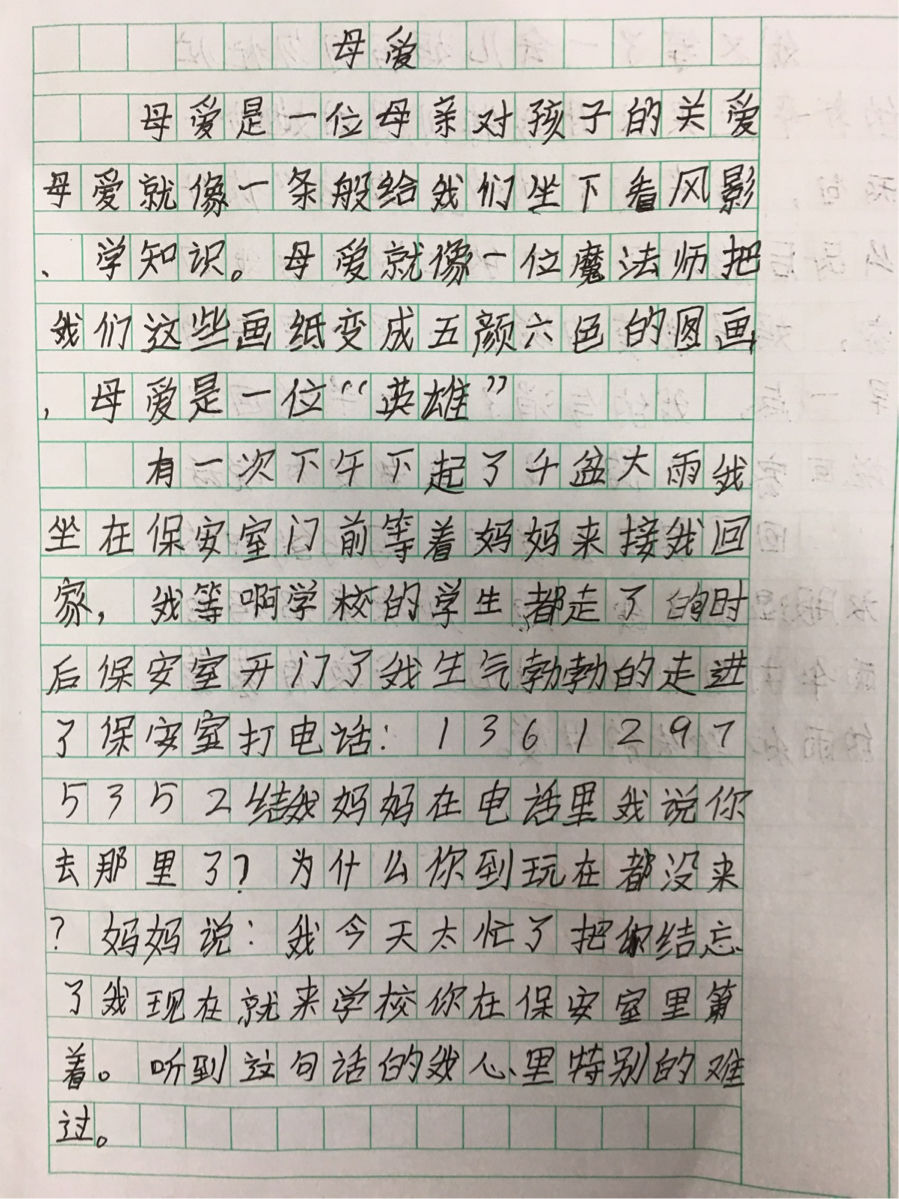 母爱
母爱是一位母亲对孩子的关爱
母爱就像一条般给我们坐下看风影
、学知识。母爱就像一位魔法师把
我们这些画纸变成五颜六色的图画
,母爱是一位“英雄”
有一次下午下起了千盆大雨我
坐在保安室门前等着妈妈来接我回
家,我等啊学校的学生都走了的时
后保安室开门了我生气勃勃的走进
了保安室打电话:1361297
5352结我妈妈在电话里我说你
去那里了?为什么你到玩在都没来
?妈妈说:我今天太忙了把你结忘
了我现在就来学校你在保安室里第
着。听到这句话的我心里特别的难
过。